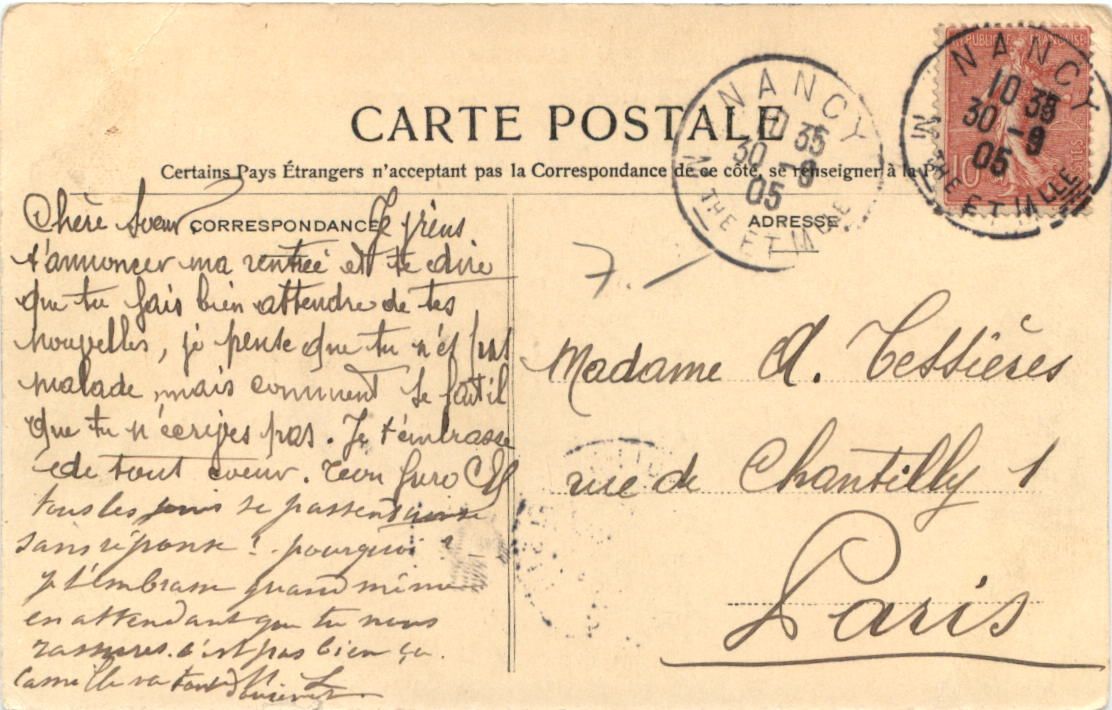 RÉPUBLIQUE FRANÇAISE
10
POSTES
NANCY
10 35
30 -9
05
MTHE ET MLLE
NANCY
10 35
30 -9
05
MTHE ET MLLE
CARTE POSTALE
Certains Pays Étrangers n'acceptant pas la Correspondance de ce côté, se renseigner à la
CORRESPONDANCE
ADRESSE
Chère Soeur, Je viens
t'annoncer ma rentrée et te dire
que tu fais bien attendre de tes
nouvelles, je pense que tu n'es pas
malade, mais comment se fait il
que tu n'écrives pas. Je t'embrasse
de tout coeur. Ton
tous les jours se passent
sans réponse ! pourquoi ?
je t'embrasse quand même
en attendant que tu nous
rassures. c'est pas bien ça.
Camille va tout
7.
Madame A. Tessières
rue de Chantilly 1
Paris